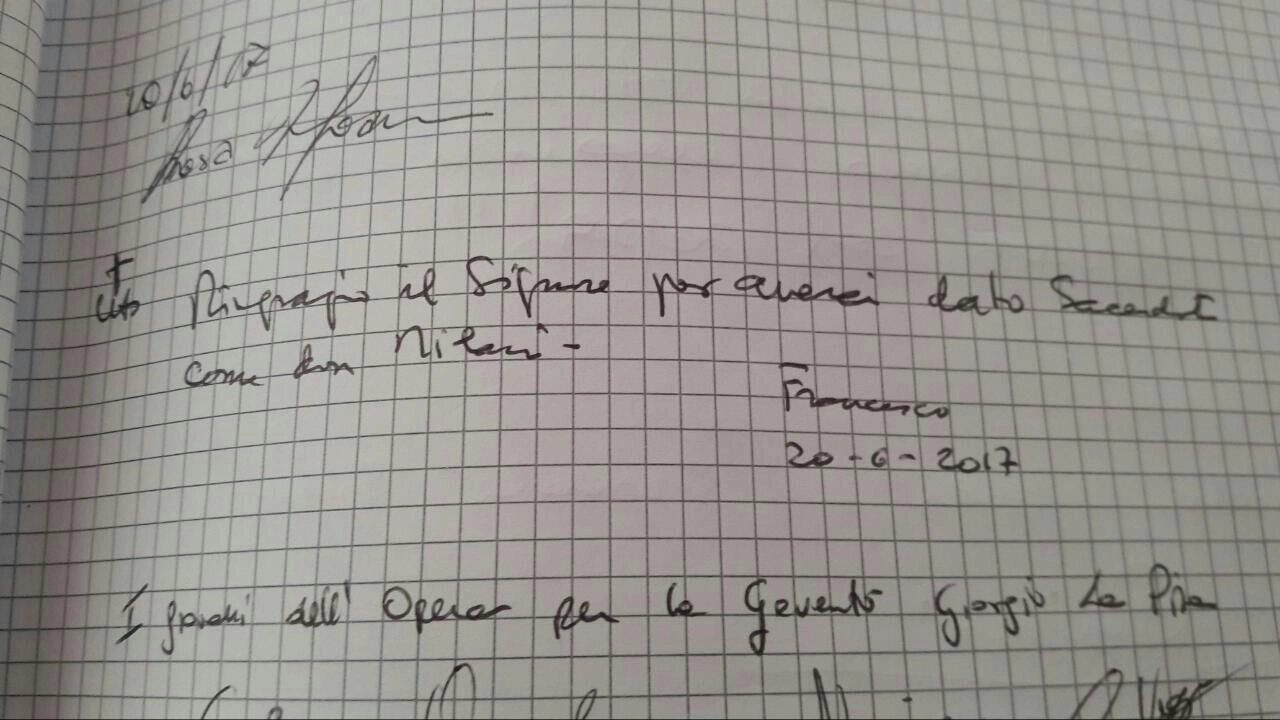 20/6/17
Rosa
Ringrazio il Signore per averci dato Sacerdoti
come don Milani -
Francesco
20-6-2017
I giovani dell' Opera per la Gioventù Giorgio La Pira